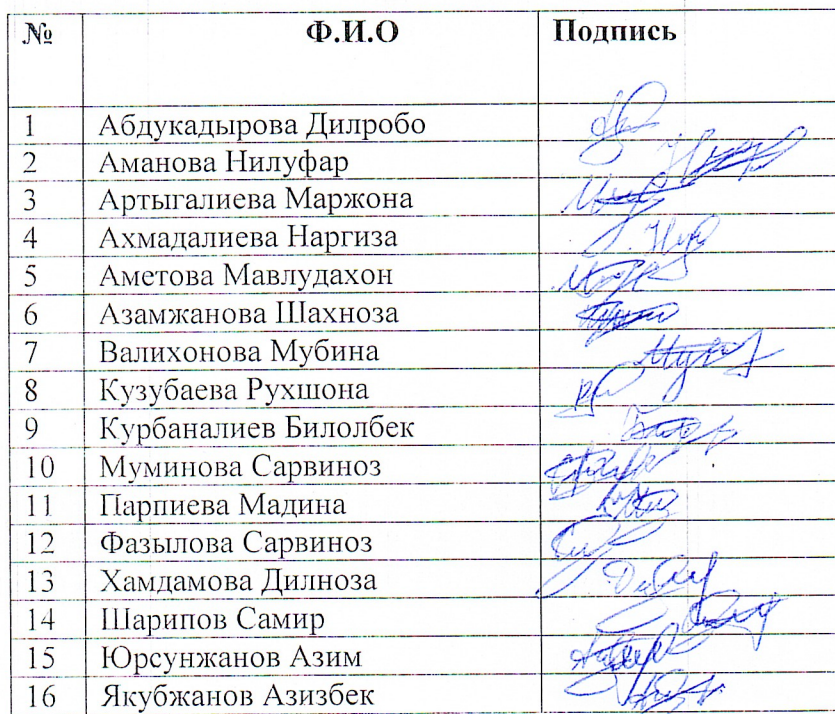 № Ф.И.О Подпись
1 Абдукадырова Дилробо
2 Аманова Нилуфар
3 Артыгалиева Маржона
4 Ахмадалиева Наргиза
5 Аметова Мавлудахон
6 Азамжанова Шахноза
7 Валихонова Мубина
8 Кузубаева Рухшона
9 Курбаналиев Билолбек
10 Муминова Сарвиноз
11 Парпиева Мадина
12 Фазылова Сарвиноз
13 Хамдамова Дилноза
14 Шарипов Самир
15 Юрсунжанов Азим
16 Якубжанов Азизбек